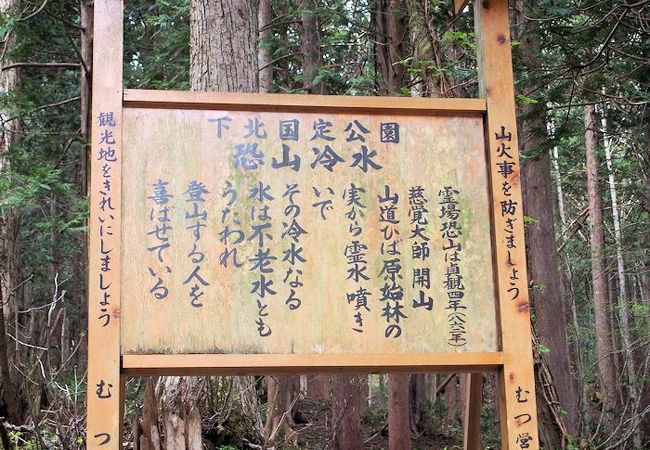 下北国定公園
恐山冷水
霊場恐山は貞観四年(八六二年)
慈覚大師開山
山道ひば原始林の
実から霊水噴き
いで
その冷水なる
水は不老水とも
うたわれ
登山する人を
喜ばせている
山火事を防ぎましょう
むつ営
観光地をきれいにしましょう
むつ